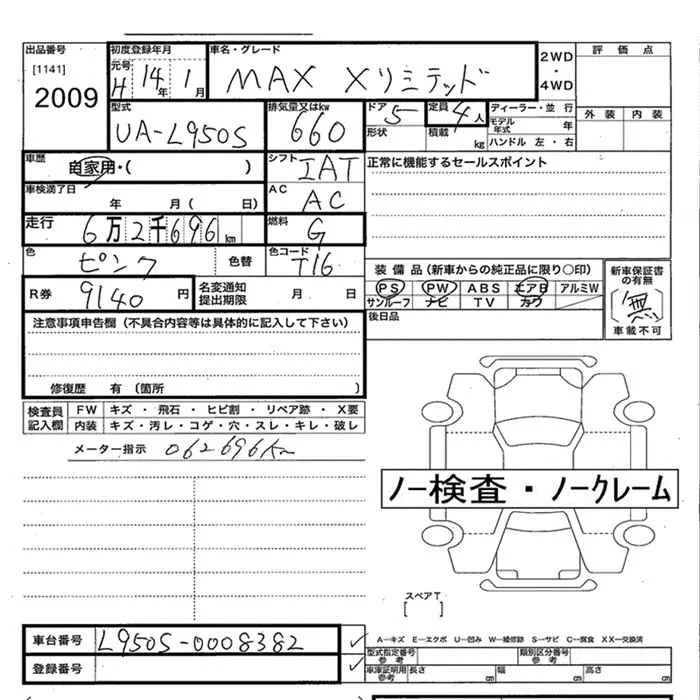 出品番号 初度登録年月 車名・グレード 2WD・4WD 評価点
[1141] 元号 H 14年 1月 MAX Xリミテッド
2009
型式 排気量又はkw ドア 5 定員 4人 ディーラー・並行 外装 内装
UA-L950S 660 形状 積載 kg モデル年式 年
ハンドル 左・右
車歴 自家用・( ) シフト IAT 正常に機能するセールスポイント
車検満了日 年 月( 日) AC AC
走行 6万2千696km 燃料 G
色 ピンク 色替 色コード T16
装備品(新車からの純正品に限り○印) 新車保証書の有無
R券 9140円 名変通知提出期限 月 日 PS PW ABS エアB アルミW (無)
サンルーフ ナビ TV カワ 車載不可
注意事項申告欄(不具合内容等は具体的に記入して下さい) 後日品
修復歴 有(箇所 )
検査員記入欄 FW キズ・飛石・ヒビ割・リペア跡・X要
内装 キズ・汚レ・コゲ・穴・スレ・キレ・破レ
メーター指示 062696Km
ノー検査・ノークレーム
スペアT
[ ]
車台番号 L950S-0008382 A―キズ E―エクボ U―凹み W―補修跡 S―サビ C―腐食 XX―交換済
型式指定番号 参考 類別区分番号 参考
登録番号 車庫証明用 参考 長さ cm 幅 cm 高さ cm